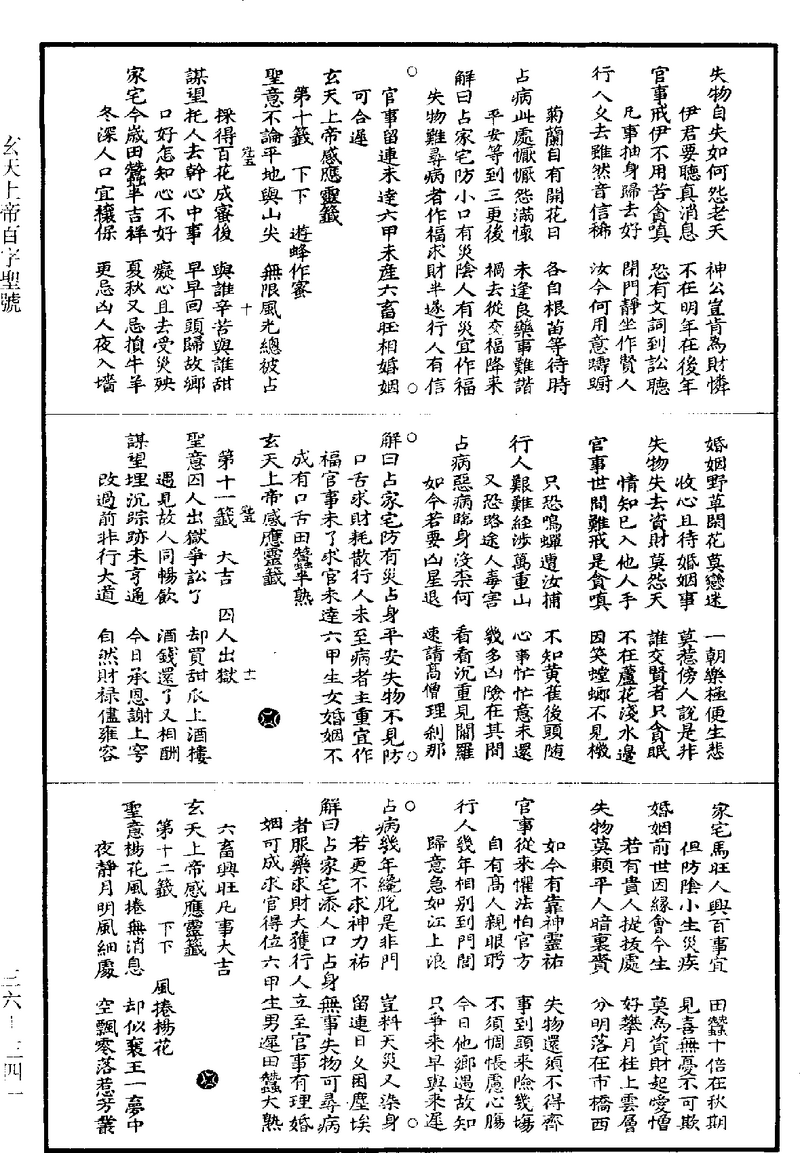 失物自失如何怨老天　神公豈肯為財憐
伊君要聽真消息　不在明年在後年
官事戒伊不用苦貪嗔　恐有文詞到訟聽
凡事抽身歸去好　閉門靜坐作賢人
行人久去雖然音信稀　汝今何用意躊躕
菊蘭自有開花日　各自根苗等待時
占病此處懨懨怨滿懷　未逢良藥事難諧
平安等到三更後　禍去從交福降来
解曰占家宅防小口有災陰人有災宜作福
失物難尋病者作福求財半遂行人有信
官事留連未達六甲未産六畜旺相婚姻
可合遲
○　○
玄天上帝感應靈籤
第十籤　下下　遊蜂作蜜
聖意不論平地與山尖　無限風光總被占
採得百花成蜜後　與誰辛苦與誰甜
謀望托人去幹心中事　早早回頭歸故鄉
口好怎知心不好　癡心且去受災殃
家宅今歲田蠶半吉祥　夏秋又忌損牛羊
冬深人口宜穰保　更忌凶人夜入墻
婚姻野草閑花莫戀迷　一朝樂極便生悲
收心且待婚姻事　莫惹傍人說是非
失物失去資財莫怨天　誰交賢者只貪眠
情知已入他人手　不在蘆花淺水邊
官事世問難戒是貪嗔　因笑螳螂不見機
只恐鳴蟬遭汝捕　不知黄雀後頭随
行人艱難経涉萬重山　心事忙忙意未還
又恐路途人毒害　幾多凶險在其間
占病惡病䏶身没柰何　看看沉重見閻羅
如今若要凶星退　速請髙僧理刹那
○　○
解曰占家宅防有災占身平安失物不見防
口舌求財耗散行人未至病者主重宜作
福官事未了求官未達六甲生女婚姻不
成有口舌田蠶半熟
玄天上帝感應靈籤
第十一籤　大吉　囚人出獄
聖意囚人出獄爭訟了　却買甜瓜上酒樓
遇見故人同暢飲　酒錢還了又相酬
謀望埋沉踪跡未亨通　今日承恩謝上穹
改過前非行大道　自然財禄儘雍容
家宅馬旺人興百事宜　田蠶十倍在秋期
但防陰小生災疾　見喜無憂不可欺
婚姻前世因緣會今生　莫為資財起愛憎
若有貴人提拔處　好攀月桂上雲層
失物莫賴平人暗裏賫　分明落在市橋西
如今有靠神靈祐　失物還須不得齊
官事從來懼法怕官方　事到頭来險幾塲
自有髙人親眼盻　不須惆悵慮心膓
行人幾年相别到門閭　今日他鄉遇故知
歸意急如江上浪　只争来早與来遲
占病幾年纔脫是非門　豈料天災又染身
若更不求神力祐　留連日久困塵埃
○　○
解曰占家宅添人口占身無事失物可尋病
者服藥求財大獲行人立至官事有理婚
姻可成求官得位六甲生男遲田蠶大熟
六畜興旺凡事大吉
玄天上帝感應靈籤
第十二籤　下下　風捲楊花
聖意楊花風捲無消息　却似襄王一夢中
夜靜月明風細處　空飄零落惹芳叢
玄天上帝百字聖號
三六－三四一